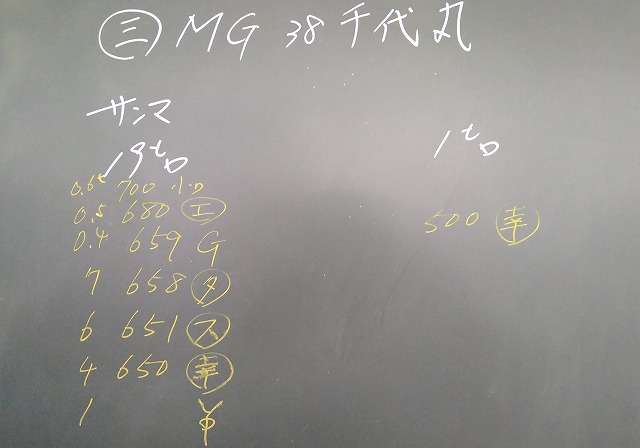 ㊂ MG 38千代丸
サンマ
19tロ
0.6t 700 小ロ
0.5 680 ㋓
0.4 659 G
7 658 ㋟
6 651 ㋜
4 650 ㊥
1 ¥
1tロ
500